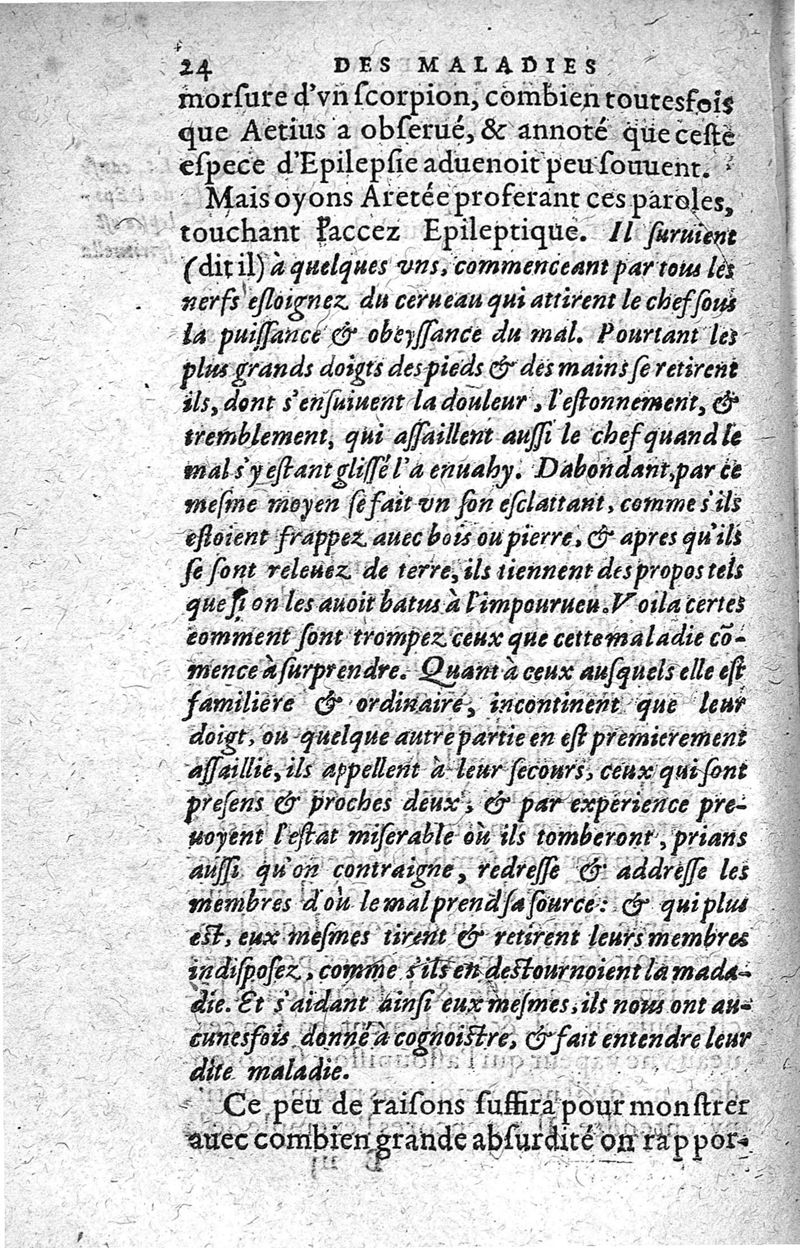 24 DES MALADIES
morſure d'vn ſcorpion, combien toutesfois
que Aetius a obſerué, & annoté que ceſte
eſpece d'Epilepſie aduenoit peu ſouuent.
Mais oyons Aretée proferant ces paroles,
touchant l'accez Epileptique. Il ſuruient
(dit il) à quelques vns, commenceant par tous les
nerfs eſloignez du cerueau qui attirent le chef ſous
la puiſſance & obeyſſance du mal. Pourtant les
plus grands doigts des pieds & des mains ſe retirent
ils, dont s'enſuiuent la douleur, l'eſtonnement, &
tremblement, qui aſſaillent auſſi le chef quand le
mal s'y eſtant gliſſé l'a enuahy. Dabondant, par ce
meſme moyen ſe fait vn ſon eſclattant, comme s'ils
eſtoient frappez auec bois ou pierre, & apres qu'ils
ſe ſont releuez de terre, ils tiennent des propos tels
que ſi on les auoit batus à l'impourueu. Voila certes
comment ſont trompez ceux que cette maladie cõ-
mence à ſurprendre. Quant à ceux auſquels elle eſt
familiere & ordinaire, incontinent que leur
doigt, ou quelque autre partie en eſt premierement
aſſaillie, ils appellent à leur ſecours, ceux qui ſont
preſens & proches deux, & par experience pre-
uoyent l'eſtat miſerable où ils tomberont, prians
auſſi qu'on contraigne, redreſſe & addreſſe les
membres d'où le mal prend ſa ſource: & qui plus
eſt, eux meſmes tirent & retirent leurs membres
indiſpoſez, comme s'ils en deſtournoient la mada-
die. Et s'aidant ainſi eux meſmes, ils nous ont au-
cunesfois donné à cognoiſtre, & fait entendre leur
dite maladie.
Ce peu de raiſons ſuffira pour monſtrer
auec combien grande abſurdité on rappor-